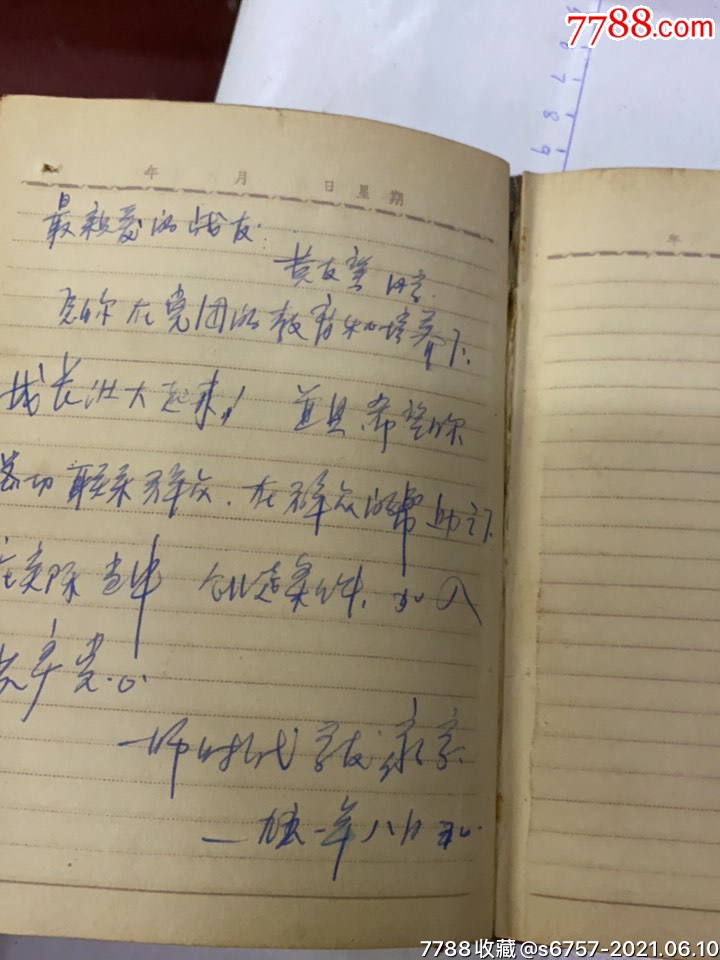 7788.com
年 月 日 星 期
最親愛的战友:
黄友 
你在党团的教育和培养下.
成长壮大起来! 並且希望你
密切联系群众.在群众的帮助之下.
在实际当中 创造条件.加入
共产党.
学友 永
一九五一年八月
年
7788收藏@s6757-2021.06.10